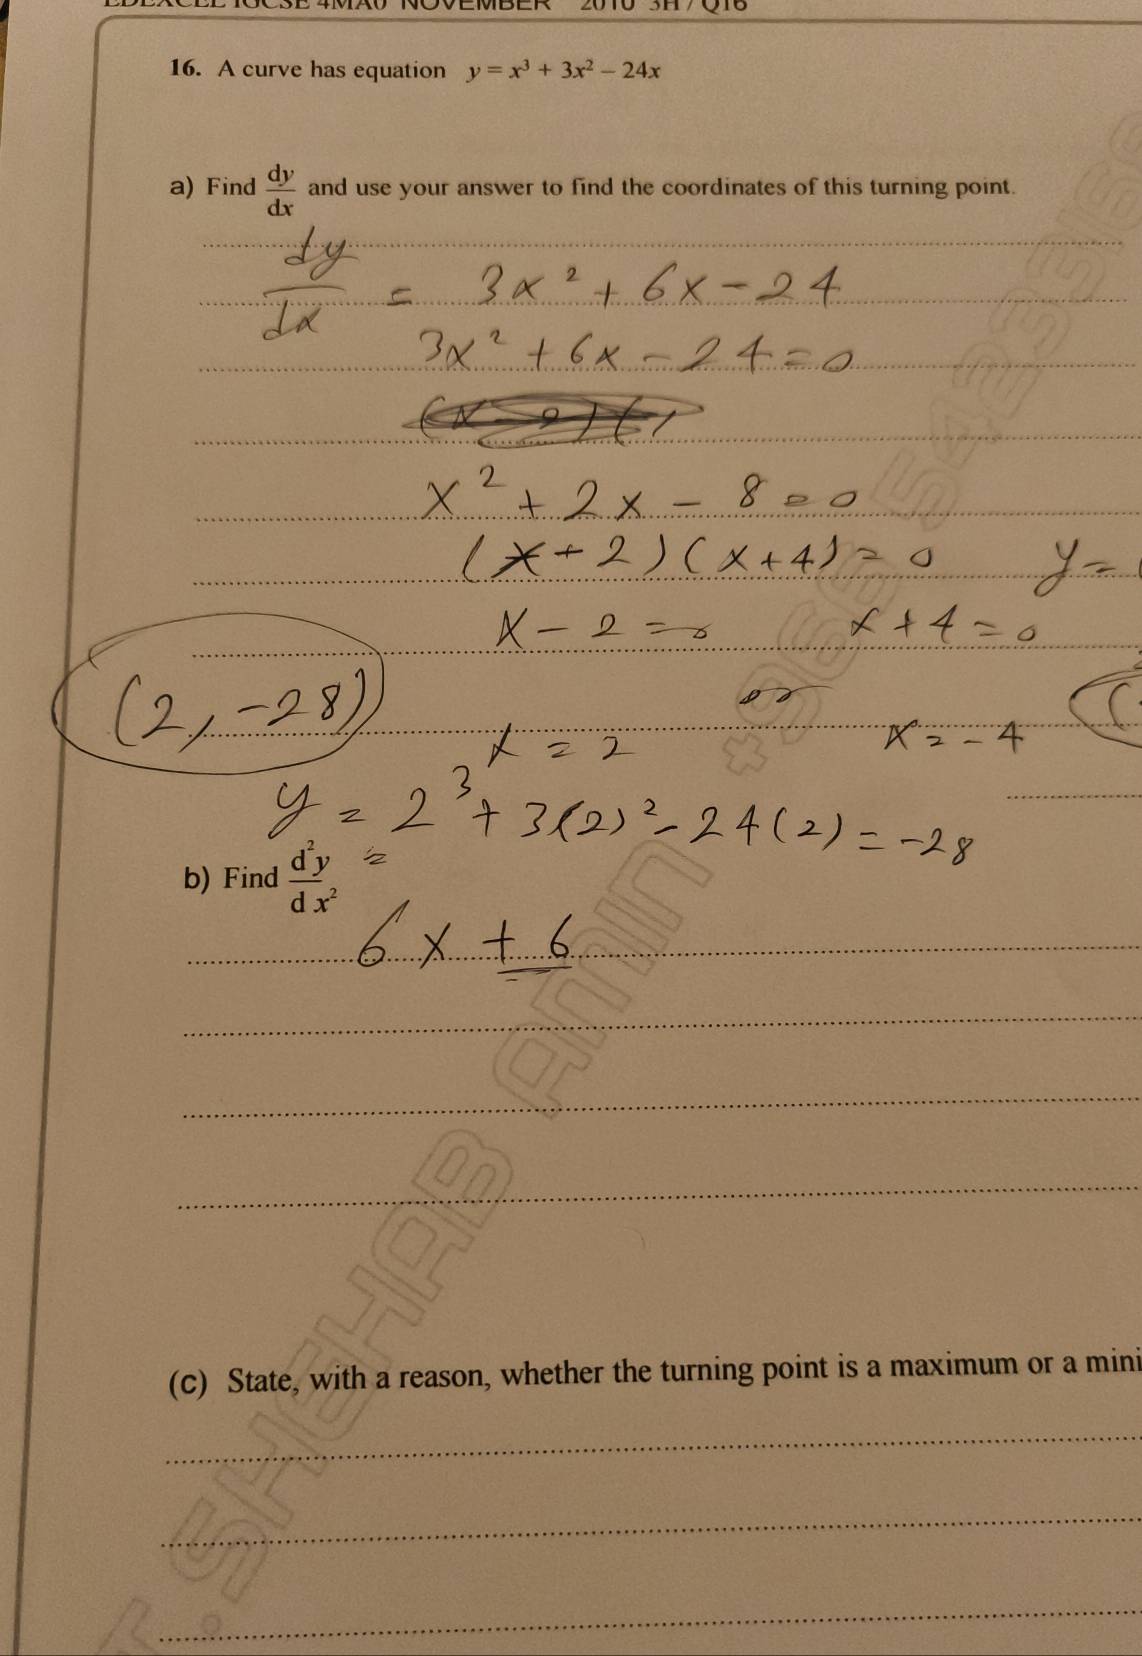 EDEXCEL IGCSE 4MA0 NOVEMBER 2010 3H / Q16
16. A curve has equation y = x³ + 3x² – 24x
a) Find dy/dx and use your answer to find the coordinates of this turning point.
dy/dx = 3x² + 6x – 24
3x² + 6x – 24 = 0
x² + 2x – 8 = 0
(x + 2) (x + 4) = 0 y =
x – 2 = 0 x + 4 = 0
(2, -28) or
x = 2 x = -4
y = 2³ + 3(2)² - 24(2) = -28
=
b) Find d²y/dx²
6x + 6
(c) State, with a reason, whether the turning point is a maximum or a mini
T.SHEHAB AMIN +966